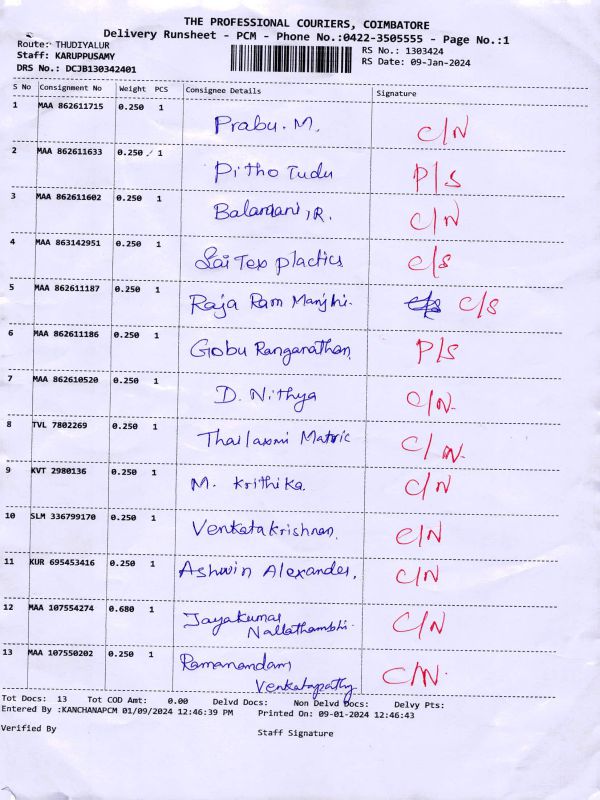 THE PROFESSIONAL COURIERS, COIMBATORE
Delivery Runsheet - PCM - Phone No.:0422-3505555 - Page No.:1
Route: THUDIYALUR RS No.: 1303424
Staff: KARUPPUSAMY RS Date: 09-Jan-2024
DRS No.: DCJB130342401
S No Consignment No Weight PCS Consignee Details Signature
1 MAA 862611715 0.250 1 Prabu. M. C/N
2 MAA 862611633 0.250 1 Pitho Tudu P/S
3 MAA 862611602 0.250 1 Balamani, R. C/N
4 MAA 863142951 0.250 1 Sai Tex plactics C/S
5 MAA 862611187 0.250 1 Raja Ram Manjhi. C/S
6 MAA 862611186 0.250 1 Gobu Ranganathan P/S
7 MAA 862610520 0.250 1 D. Nithya C/N.
8 TVL 7802269 0.250 1 Thailaxmi Matric C/N.
9 KVT 2980136 0.250 1 M. Krithika. C/N
10 SLM 336799170 0.250 1 Venkatakrishnan. C/N
11 KUR 695453416 0.250 1 Ashwin Alexander, C/N
12 MAA 107554274 0.680 1 Jayakumar C/N
Nallathambhi.
13 MAA 107550202 0.250 1 Ramanandam C/N.
Venkatapathy
Tot Docs: 13 Tot COD Amt: 0.00 Delvd Docs: Non Delvd Docs: Delvy Pts:
Entered By :KANCHANAPCM 01/09/2024 12:46:39 PM Printed On: 09-01-2024 12:46:43
Verified By Staff Signature